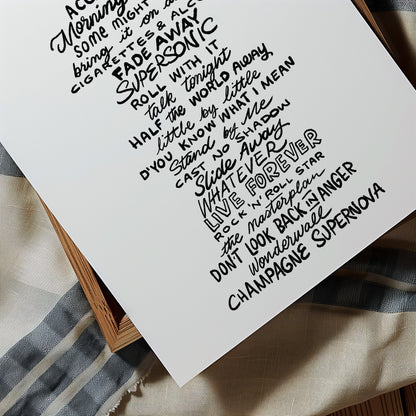 ACQ
Morning
SOME MIGHT
bring it on
CIGARETTES & ALCO
FADE AWAY
SUPERSONIC
ROLL WITH IT
talk tonight
HALF THE WORLD AWAY
little by little
D'YOU KNOW WHAT I MEAN
Stand by Me
CAST NO SHADOW
Slide Away
WHATEVER
LIVE FOREVER
ROCK 'N' ROLL STAR
the masterplan
DON'T LOOK BACK IN ANGER
Wonderwall
CHAMPAGNE SUPERNOVA